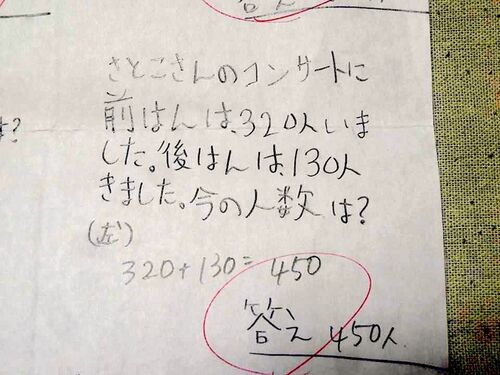 答え
は?
さとこさんのコンサートに
前はんは、320人いま
した。後はんは、130人
きました。今の人数は?
(式)
320+130=450
答え 450人